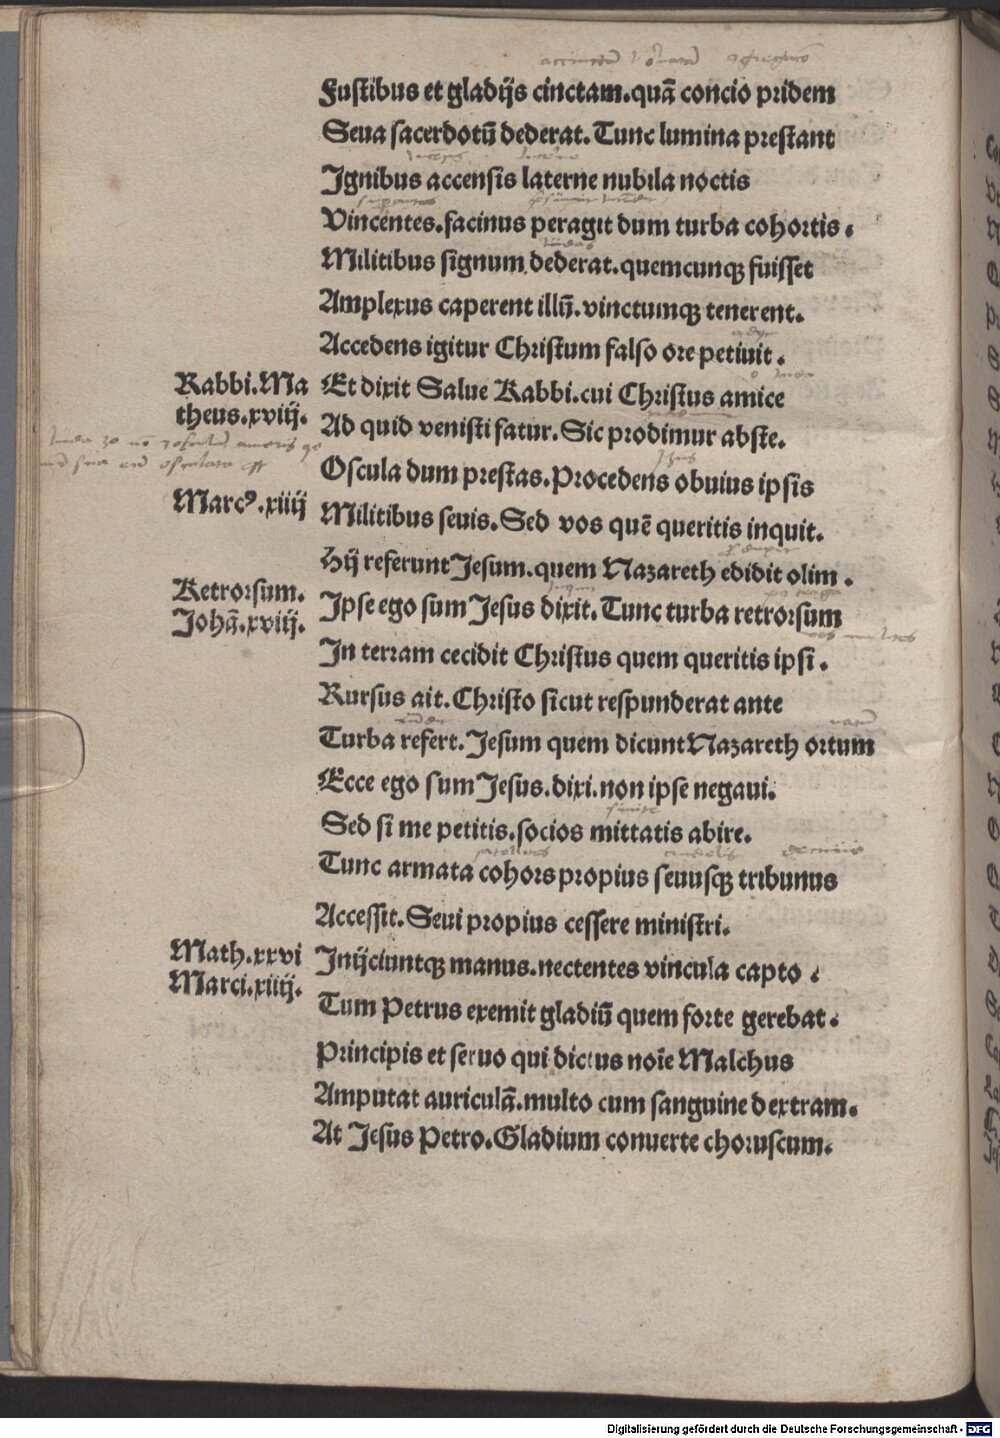 Fustibus et gladijs cinctam.quã concio pridem
Seua sacerdotũ dederat.Tunc lumina prestant
Ignibus accensis laterne nubila noctis
Vincentes.facinus peragit dum turba cohortis.
Militibus signum dederat.quemcunqꝫ fuisset
Amplexus caperent illũ.vinctumqꝫ tenerent.
Accedens igitur Christum falso ore petiuit.
Rabbi.Ma
theus.xviij.
Et dixit Salue Rabbi.cui Christus amice
Ad quid venisti fatur.Sic prodimur abste.
Oscula dum prestas.Procedens obuius ipsis
Marcꝰ.xiiij
Militibus seuis.Sed vos quẽ queritis inquit.
Hij referunt Jesum.quem Nazareth edidit olim.
Retrorsum.
Johã.xviij.
Ipse ego sum Jesus dixit.Tunc turba retrorsum
In terram cecidit Christus quem queritis ipsi.
Rursus ait.Christo sicut respunderat ante
Turba refert.Jesum quem dicunt Nazareth ortum
Ecce ego sum Jesus.dixi.non ipse negaui.
Sed si me petitis.socios mittatis abire.
Tunc armata cohors propius seuusqꝫ tribunus
Accessit.Seui propius cessere ministri.
Math.xxvi
Marci.xiiij.
Inijciuntqꝫ manus.nectentes vincula capto.
Tum Petrus exemit gladiũ quem forte gerebat.
Principis et seruo qui dictus noĩe Malchus
Amputat auriculã.multo cum sanguine dextram.
At Jesus Petro.Gladium conuerte choruscum.
Digitalisierung gefördert durch die Deutsche Forschungsgemeinschaft - DFG